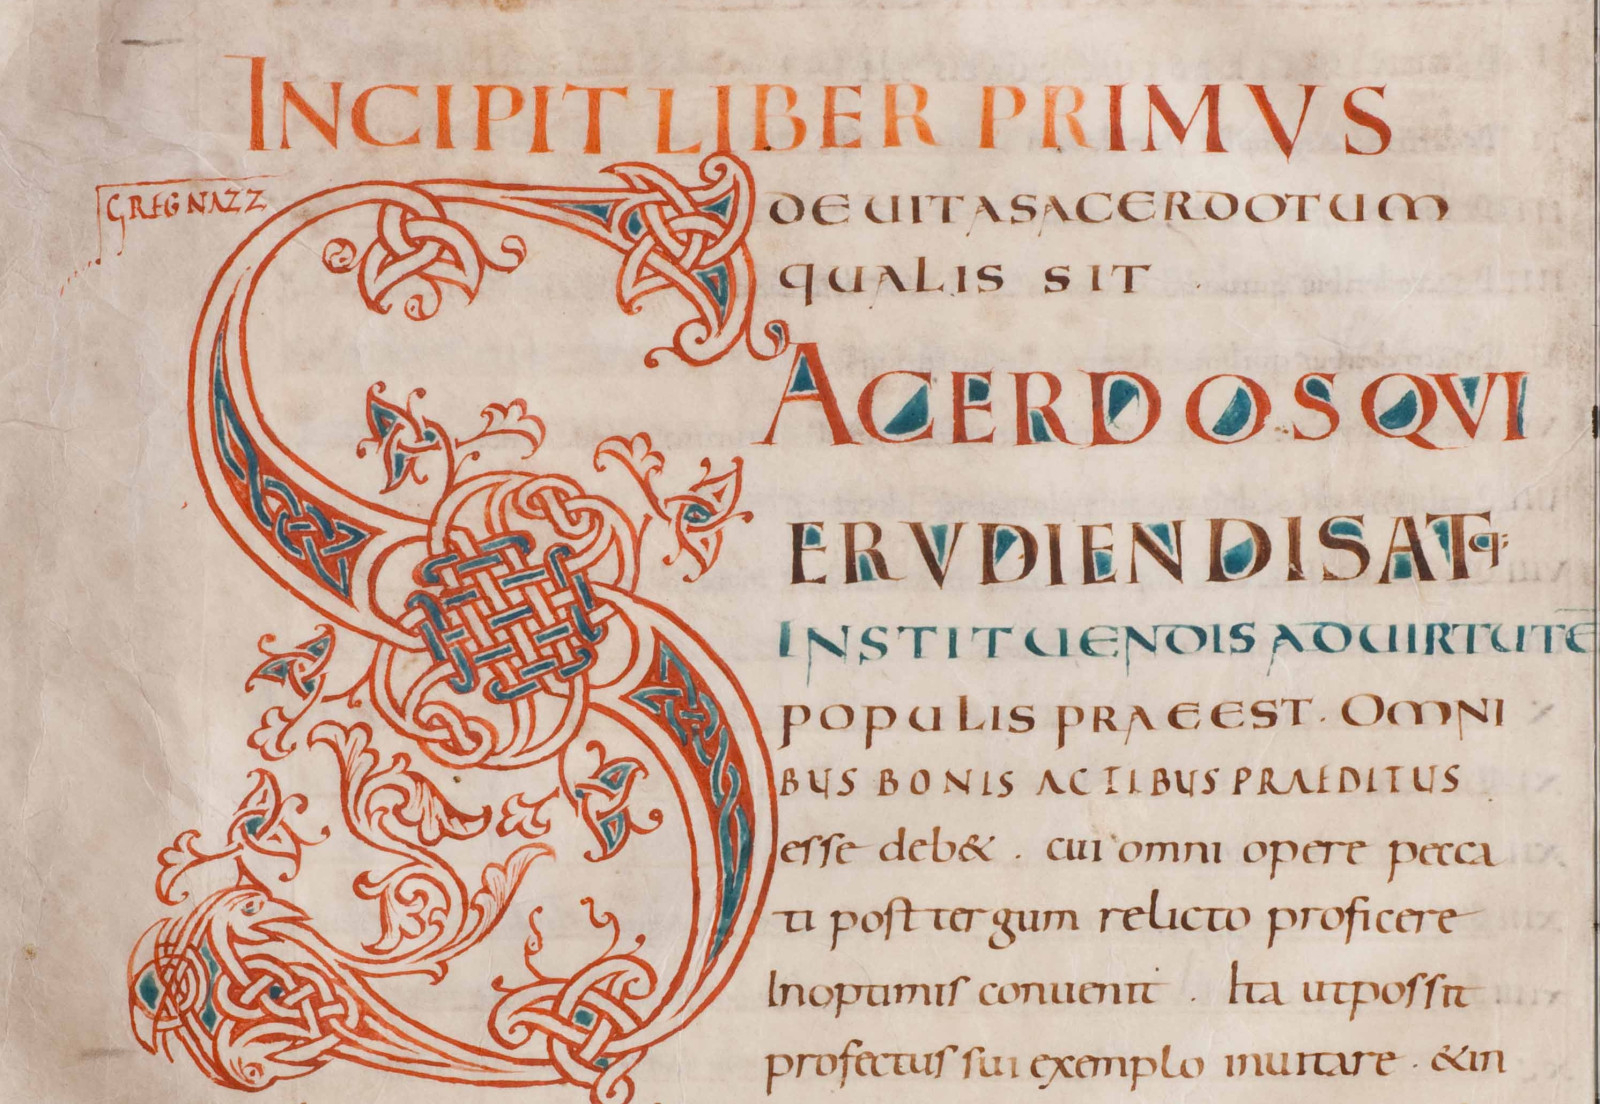 INCIPIT LIBER PRIMVS
GREG NAZZ
DE UITA SACERDOTUM
QUALIS SIT
SACERDOS QVI
ERVDIENDIS ATq;
INSTITUENDIS AD UIRTUTĒ
POPULIS PRAEEST. OMNI
BUS BONIS ACTIBUS PRAEDITUS
esse deb&. cui omni opere pecca
ti post tergum relicto proficere
In optimis conuenit. Ita ut possit
profectus sui exemplo inuitare. &in